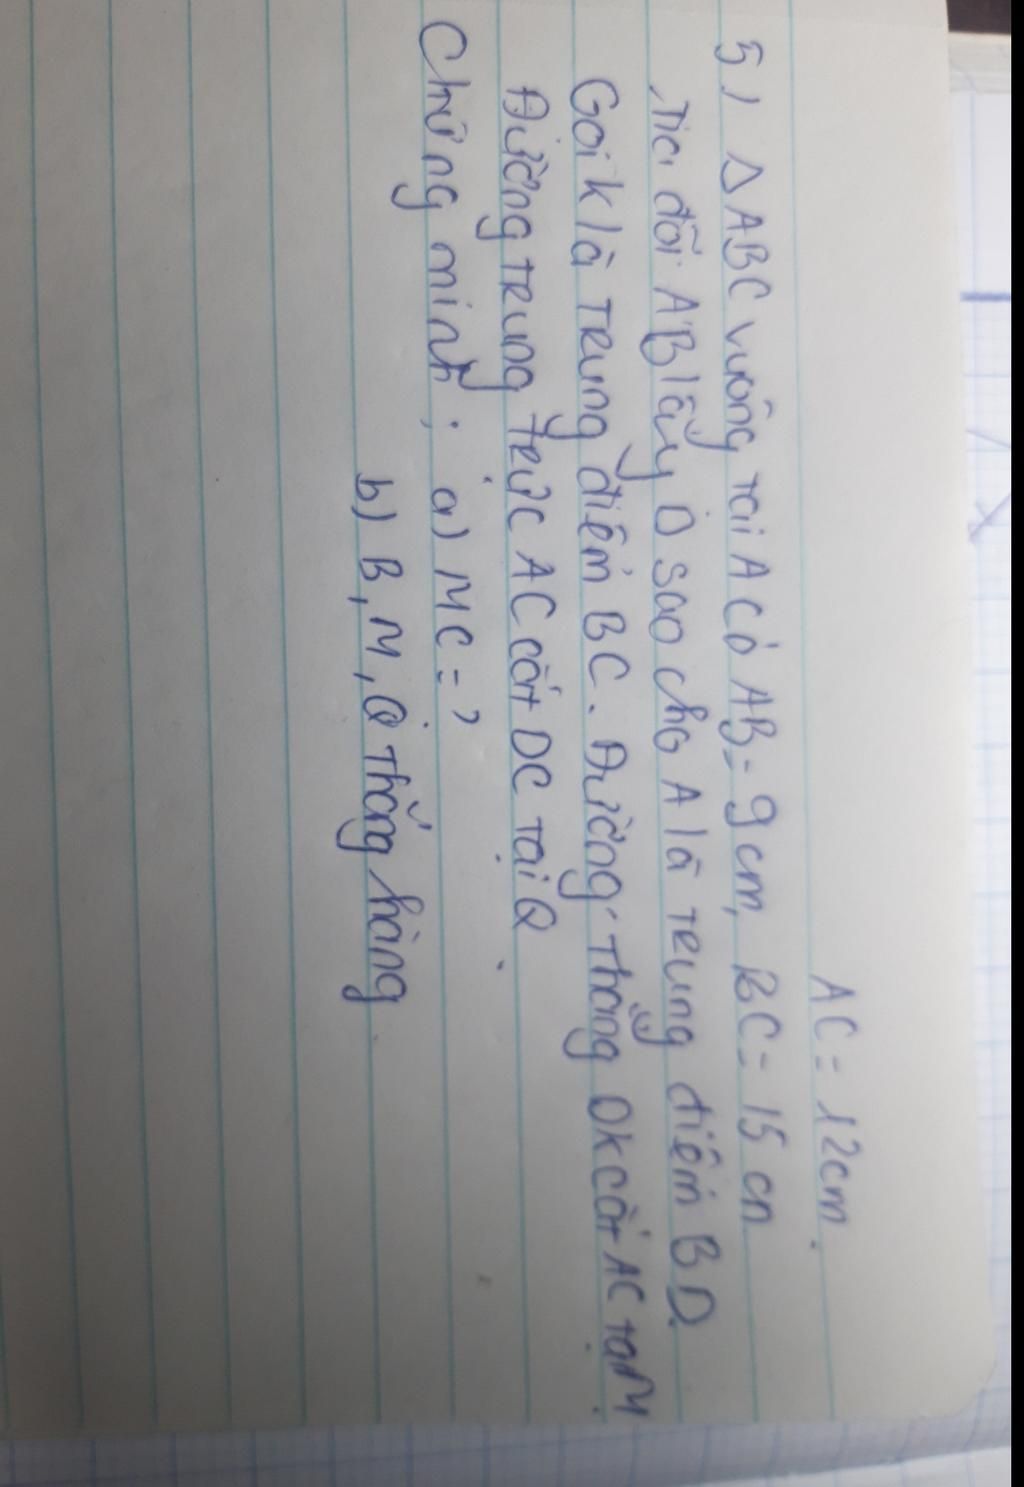 AC = 12cm.
5) Δ ABC vuông tại A có AB = 9cm, BC = 15 cm
Tia đối AB lấy D sao cho A là trung điểm BD.
Gọi K là trung điểm BC. Đường thẳng DK cắt AC tại M
Đường trung trực AC cắt DC tại Q
Chứng minh : a) MC = ?
b) B, M, Q thẳng hàng